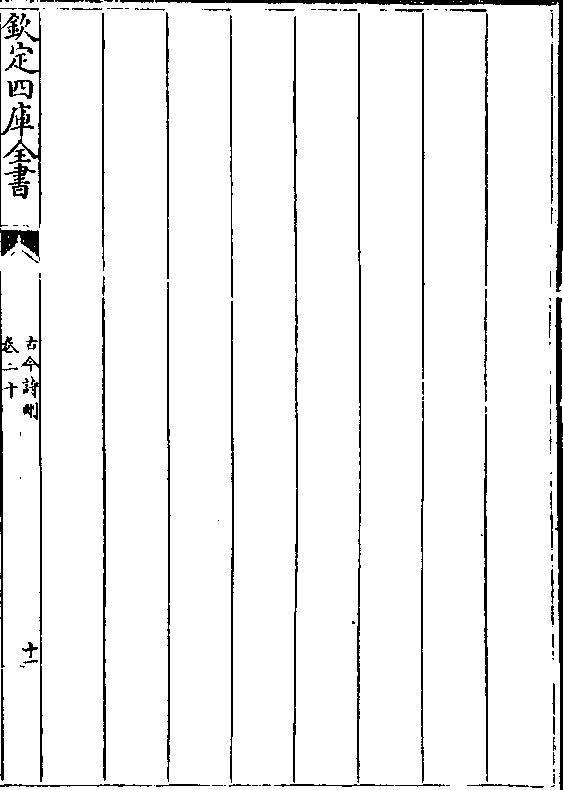 欽定四庫全書
古今詩刪
卷二十
十一